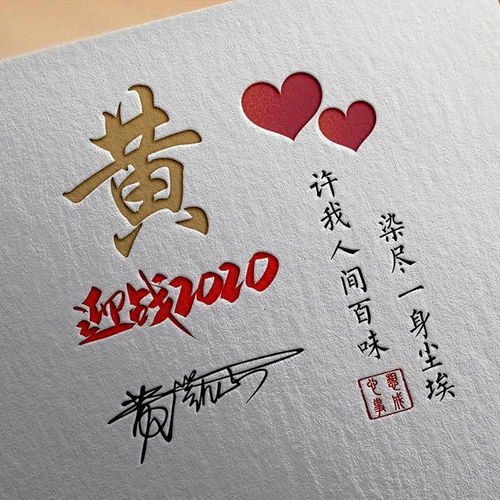 黄
迎战2020
染尽一身尘埃
许我人间百味
心想事成